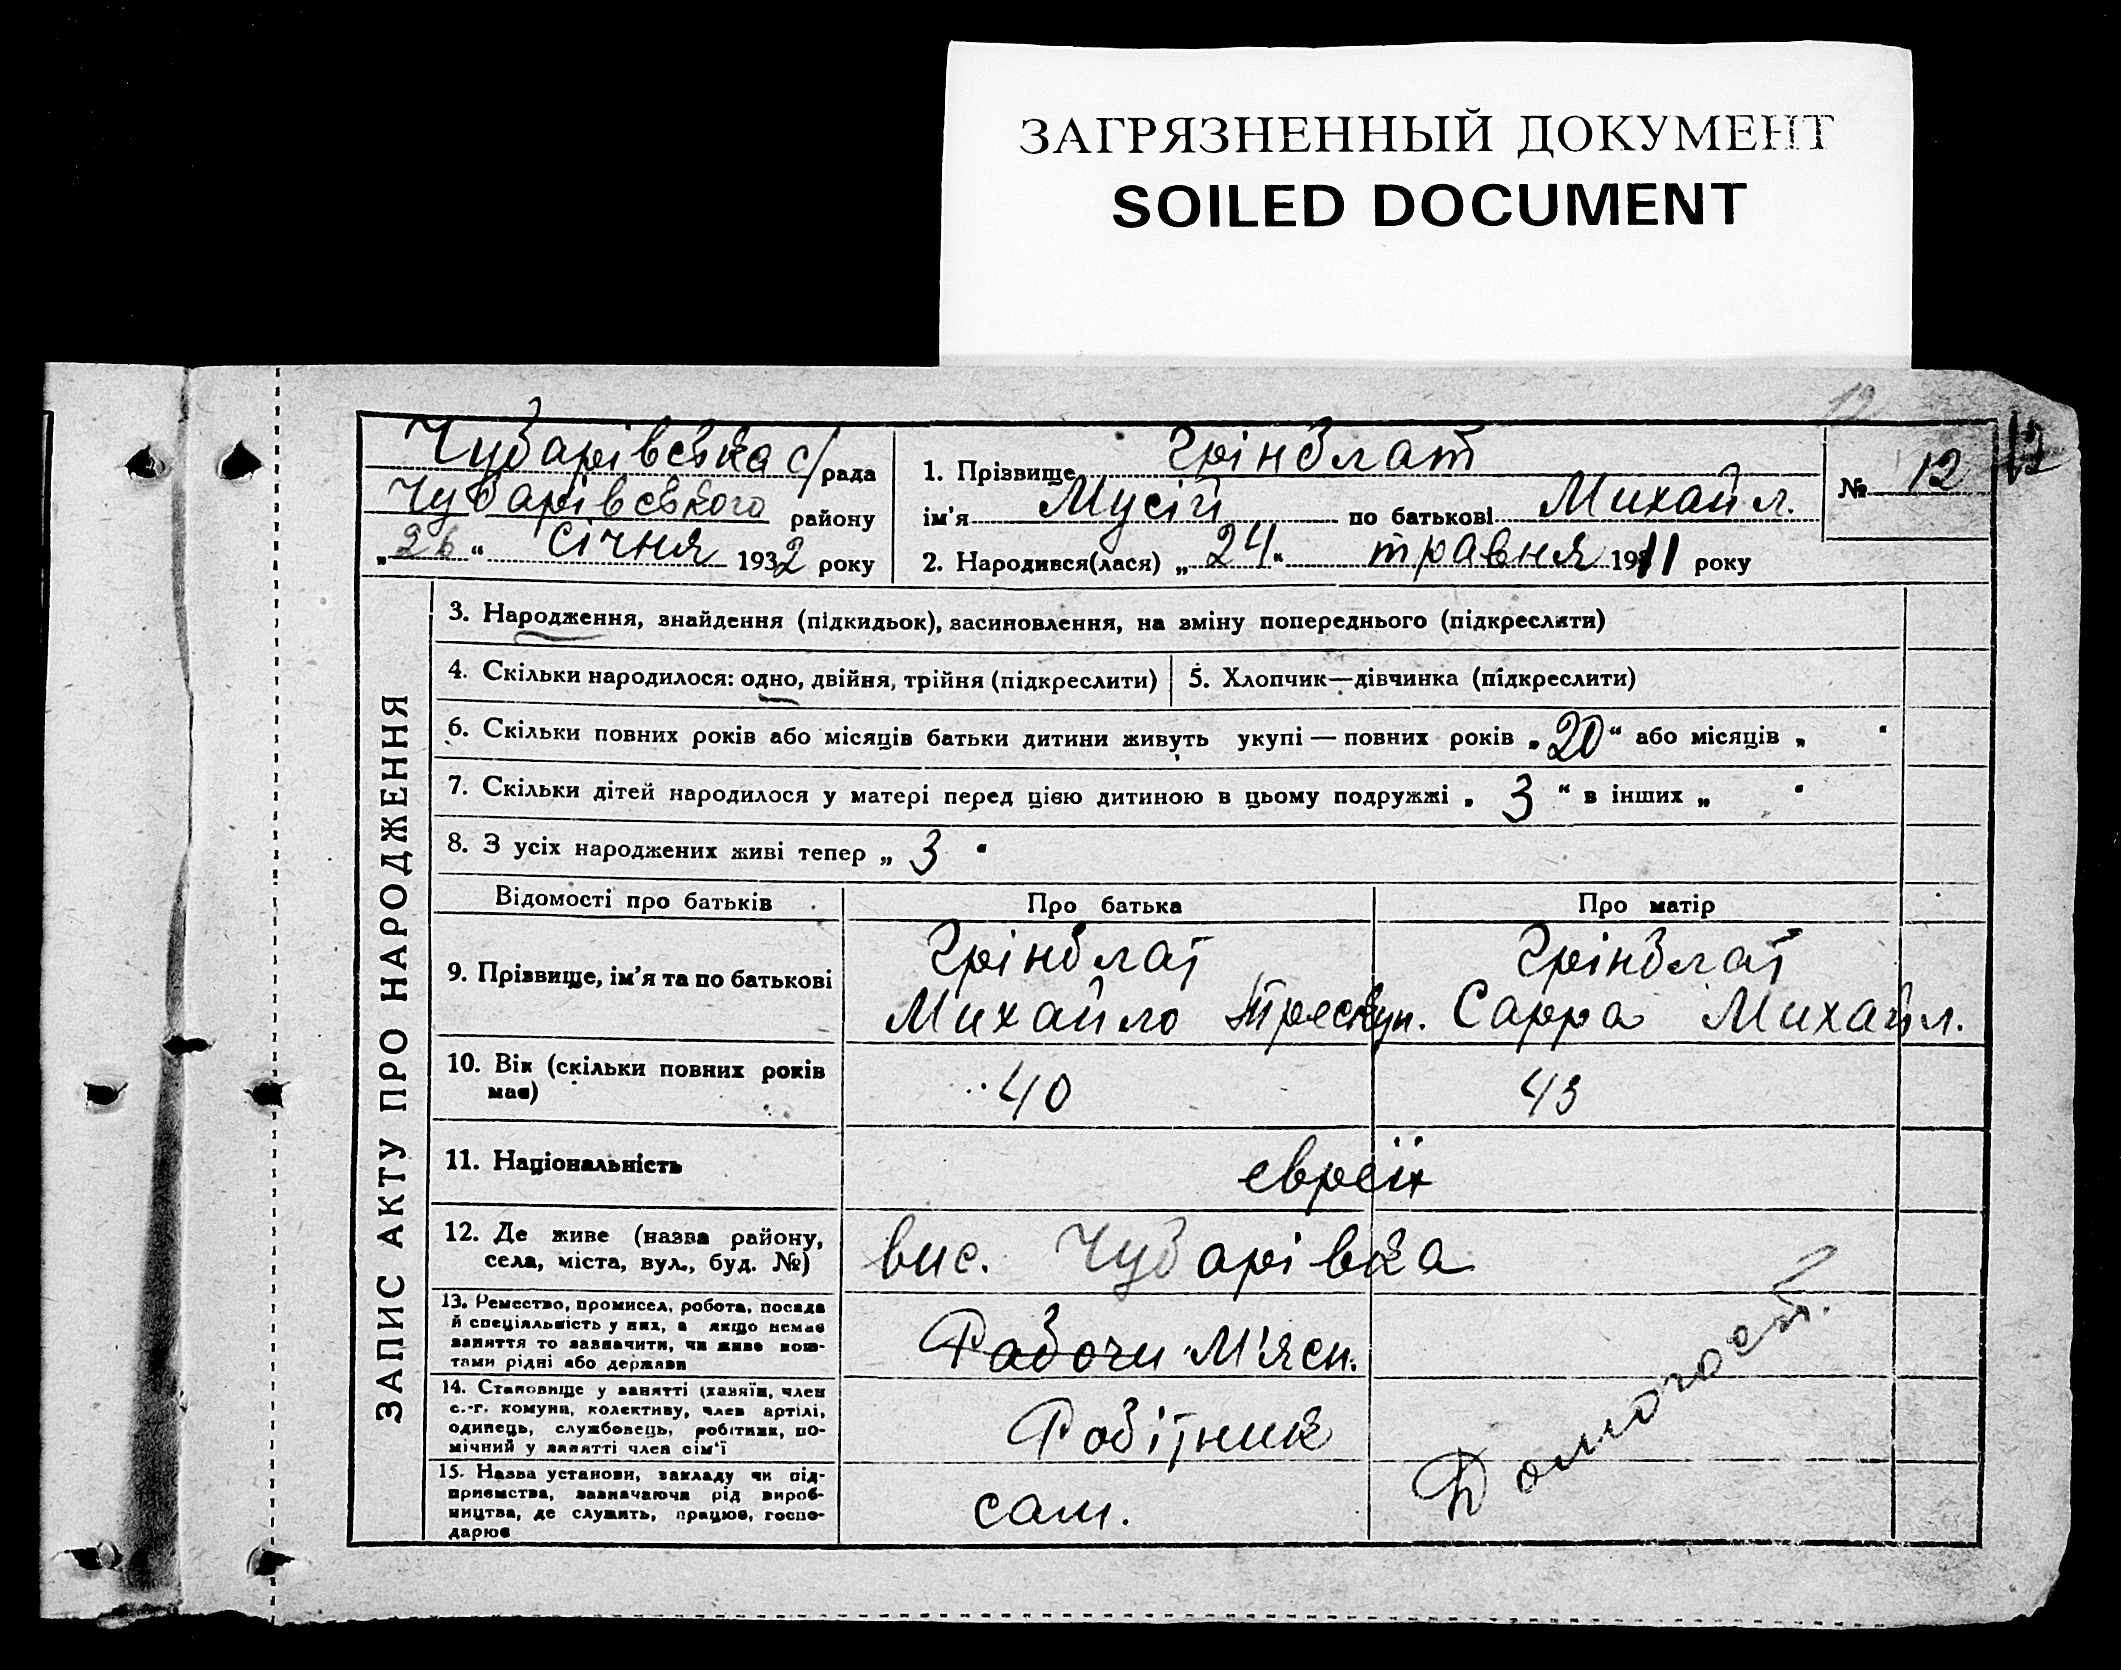 ЗАГРЯЗНЕННЫЙ ДОКУМЕНТ
SOILED DOCUMENT
12
Чубарівська с/рада
Чубарівського району
„26“ Січня 1932 року
1. Прізвище Грінблат
ім'я Мусій по батькові Михайл.
2. Народився(лася) „24“ травня 1911 року
№ 12
ЗАПИС АКТУ ПРО НАРОДЖЕННЯ
3. Народження, знайдення (підкидьок), засиновлення, на зміну попереднього (підкреслити)
4. Скільки народилося: одно, двійня, трійня (підкреслити)
5. Хлопчик—дівчинка (підкреслити)
6. Скільки повних років або місяців батьки дитини живуть укупі — повних років „20“ або місяців „ “
7. Скільки дітей народилося у матері перед цією дитиною в цьому подружжі „ 3 “ в інших „ “
8. З усіх народжених живі тепер „ 3 “
Відомості про батьків
Про батька
Про матір
9. Прізвище, ім'я та по батькові
Грінблат
Михайло
Грінблат
Сарра Михайл.
10. Вік (скільки повних років
має)
40
43
11. Національність
євреї
12. Де живе (назва району,
села, міста, вул., буд. №)
вис. Чубарівка
13. Ремество, промисел, робота, посада
й спеціяльність у них, а якщо немає
заняття то зазначити, чи живе кош-
тами рідні або держави
Рабочи М'ясн.
14. Становище у занятті (хазяїн, член
с.-г. комуни, колективу, член артілі,
одинець, службовець, робітник, по-
мічний у занятті член сім'ї
Робітник
15. Назва установи, закладу чи під-
приємства, зазначаючи рід вироб-
ництва, де служить, працює, госпо-
дарює
сам.
Домогосп.